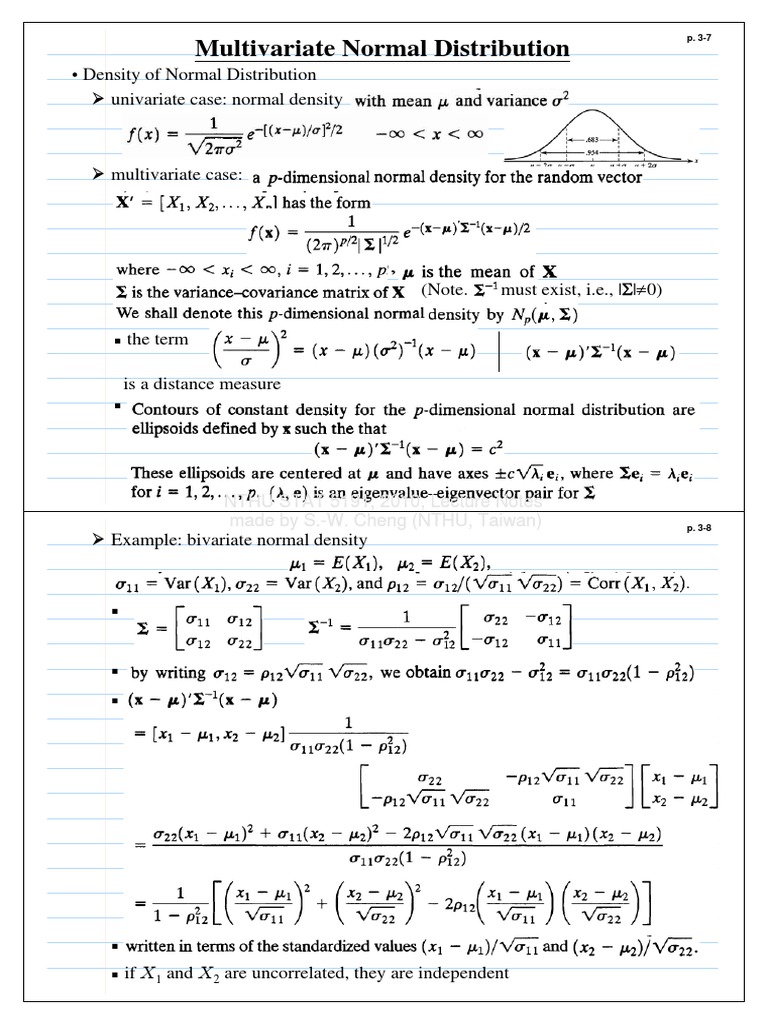 p. 3-7
Multivariate Normal Distribution
• Density of Normal Distribution
➢ univariate case: normal density with mean μ and variance σ²
f(x) = 1/√(2πσ²) e^{−[(x−μ)/σ]²/2}   −∞ < x < ∞
.683
.954
μ−2σ μ−σ μ μ+σ μ+2σ x
➢ multivariate case: a p-dimensional normal density for the random vector
X′ = [X₁, X₂,..., Xₚ] has the form
f(x) = 1/((2π)^{p/2}|Σ|^{1/2}) e^{−(x−μ)′Σ⁻¹(x−μ)/2}
where −∞ < xᵢ < ∞, i = 1, 2,..., p, μ is the mean of X
Σ is the variance–covariance matrix of X (Note. Σ⁻¹ must exist, i.e., |Σ|≠0)
We shall denote this p-dimensional normal density by Nₚ(μ, Σ)
▪ the term ((x − μ)/σ)² = (x − μ)(σ²)⁻¹(x − μ) | (x − μ)′Σ⁻¹(x − μ)
is a distance measure
▪ Contours of constant density for the p-dimensional normal distribution are
ellipsoids defined by x such the that
(x − μ)′Σ⁻¹(x − μ) = c²
These ellipsoids are centered at μ and have axes ±c√λᵢ eᵢ, where Σeᵢ = λᵢeᵢ
for i = 1, 2,..., p. (λ, e) is an eigenvalue–eigenvector pair for Σ
NTHU STAT 5191, 2010, Lecture Notes
made by S.-W. Cheng (NTHU, Taiwan)
p. 3-8
➢ Example: bivariate normal density
μ₁ = E(X₁), μ₂ = E(X₂),
σ₁₁ = Var(X₁), σ₂₂ = Var(X₂), and ρ₁₂ = σ₁₂/(√σ₁₁ √σ₂₂) = Corr(X₁, X₂).
▪ Σ = [σ₁₁ σ₁₂; σ₁₂ σ₂₂]   Σ⁻¹ = 1/(σ₁₁σ₂₂ − σ₁₂²) [σ₂₂ −σ₁₂; −σ₁₂ σ₁₁]
▪ by writing σ₁₂ = ρ₁₂√σ₁₁ √σ₂₂, we obtain σ₁₁σ₂₂ − σ₁₂² = σ₁₁σ₂₂(1 − ρ₁₂²)
▪ (x − μ)′Σ⁻¹(x − μ)
= [x₁ − μ₁, x₂ − μ₂] 1/(σ₁₁σ₂₂(1 − ρ₁₂²))
[σ₂₂ −ρ₁₂√σ₁₁ √σ₂₂; −ρ₁₂√σ₁₁ √σ₂₂ σ₁₁] [x₁ − μ₁; x₂ − μ₂]
= (σ₂₂(x₁ − μ₁)² + σ₁₁(x₂ − μ₂)² − 2ρ₁₂√σ₁₁ √σ₂₂ (x₁ − μ₁)(x₂ − μ₂))/(σ₁₁σ₂₂(1 − ρ₁₂²))
= 1/(1 − ρ₁₂²) [((x₁ − μ₁)/√σ₁₁)² + ((x₂ − μ₂)/√σ₂₂)² − 2ρ₁₂((x₁ − μ₁)/√σ₁₁)((x₂ − μ₂)/√σ₂₂)]
▪ written in terms of the standardized values (x₁ − μ₁)/√σ₁₁ and (x₂ − μ₂)/√σ₂₂.
▪ if X₁ and X₂ are uncorrelated, they are independent